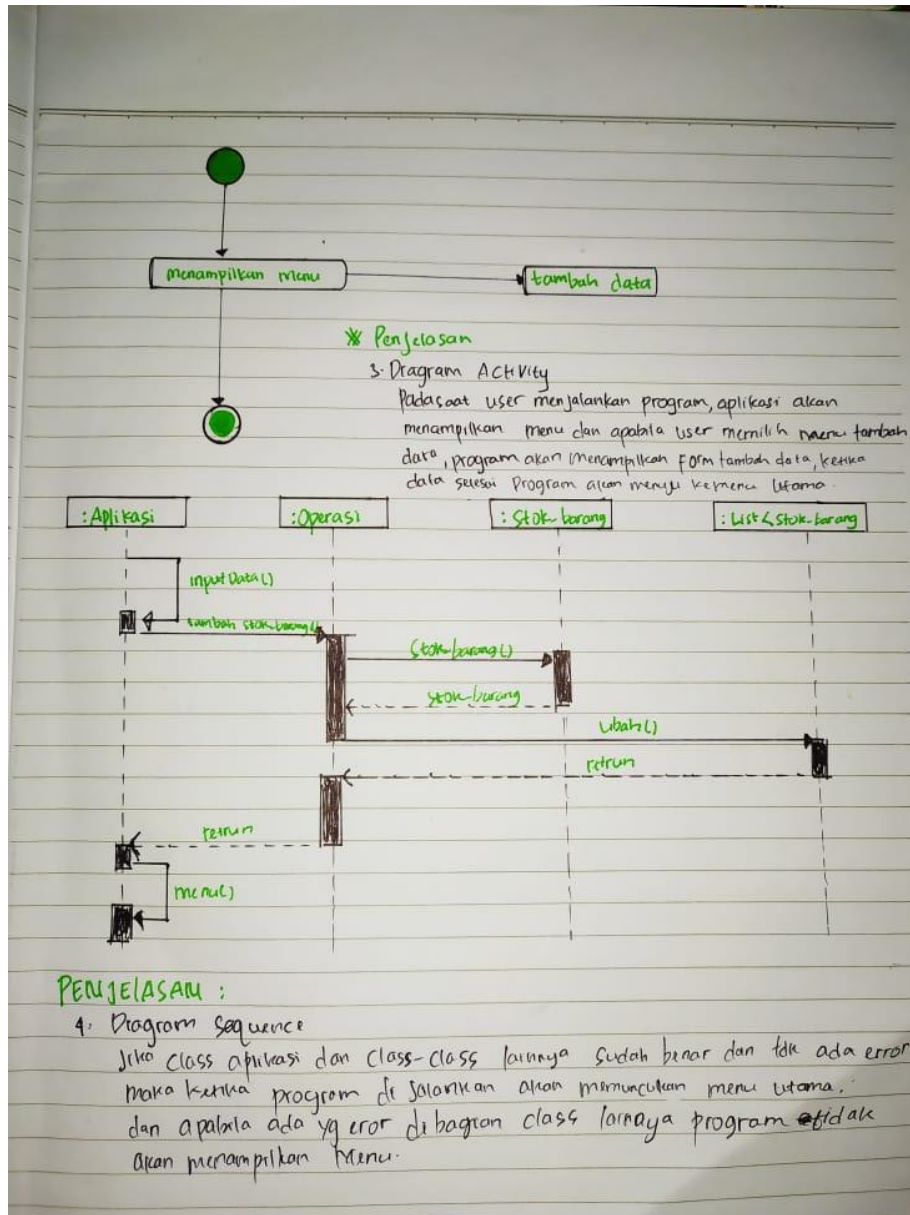 menampilkan menu
tambah data
* Penjelasan
3. Diagram Activity
Pada saat user menjalankan program, aplikasi akan
menampilkan menu dan apabila user memilih menu tambah
data, program akan menampilkan form tambah data, ketika
data selesai Program akan menuju kemenu Utama.
:Aplikasi
:Operasi
: Stok-barang
: List<Stok-barang
inputData()
tambah stok-barang()
Stok-barang()
Stok-barang
Ubah()
retrun
retrun
menu()
PENJELASAN :
4. Diagram Sequence
Jika Class aplikasi dan Class-Class lainnya sudah benar dan tdk ada error
maka ketika program di Jalankan akan memunculkan menu utama.
dan apabila ada yg eror dibagian class lainaya program tidak
akan menampilkan Menu.